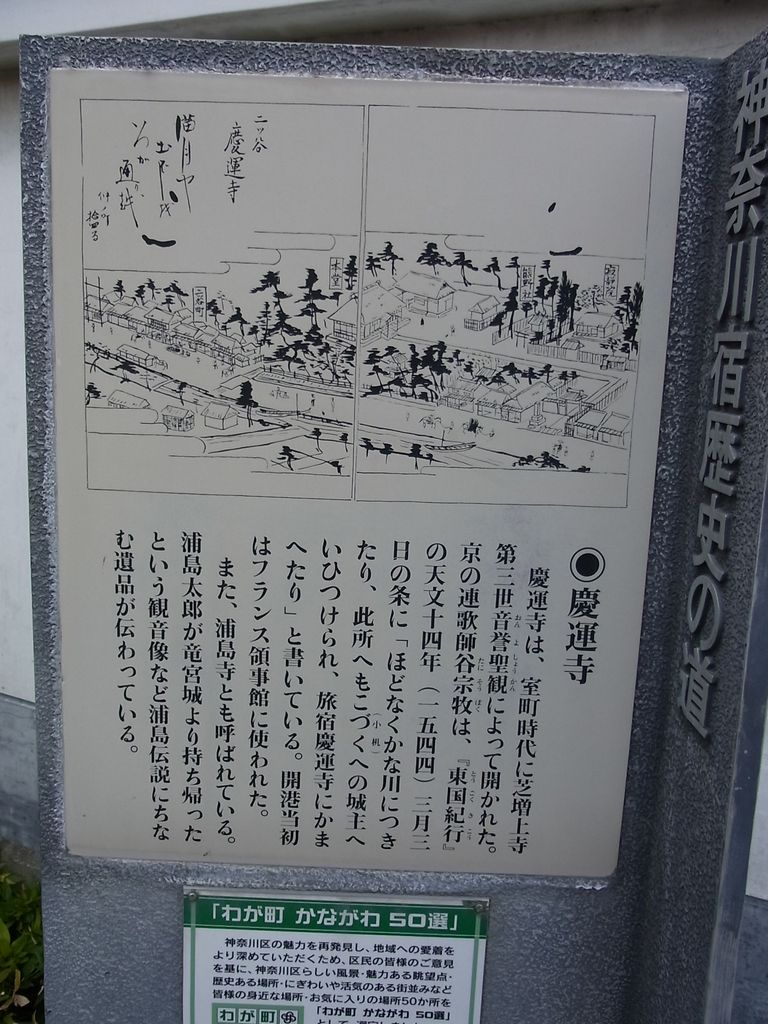 神奈川宿歴史の道
二ッ谷
慶運寺
満月や
本堂
二谷町
熊野社
◉慶運寺
慶運寺は、室町時代に芝増上寺
第三世音誉聖観によって開かれた。
おんよしょうかん
京の連歌師谷宗牧は、『東国紀行』
たにそうぼく
とうごくきこう
の天文十四年（一五四四）三月三
日の条に「ほどなくかな川につき
たり、此所へもこづくへの城主へ
（小机）
いひつけられ、旅宿慶運寺にかま
へたり」と書いている。開港当初
はフランス領事館に使われた。
また、浦島寺とも呼ばれている。
浦島太郎が竜宮城より持ち帰った
という観音像など浦島伝説にちな
む遺品が伝わっている。
「わが町 かながわ 50選」
神奈川区の魅力を再発見し、地域への愛着を
より深めていただくため、区民の皆様のご意見
を基に、神奈川区らしい風景・魅力ある眺望点・
歴史ある場所・にぎわいや活気のある街並みなど
皆様の身近な場所・お気に入りの場所50か所を
わが町
「わが町 かながわ 50選」